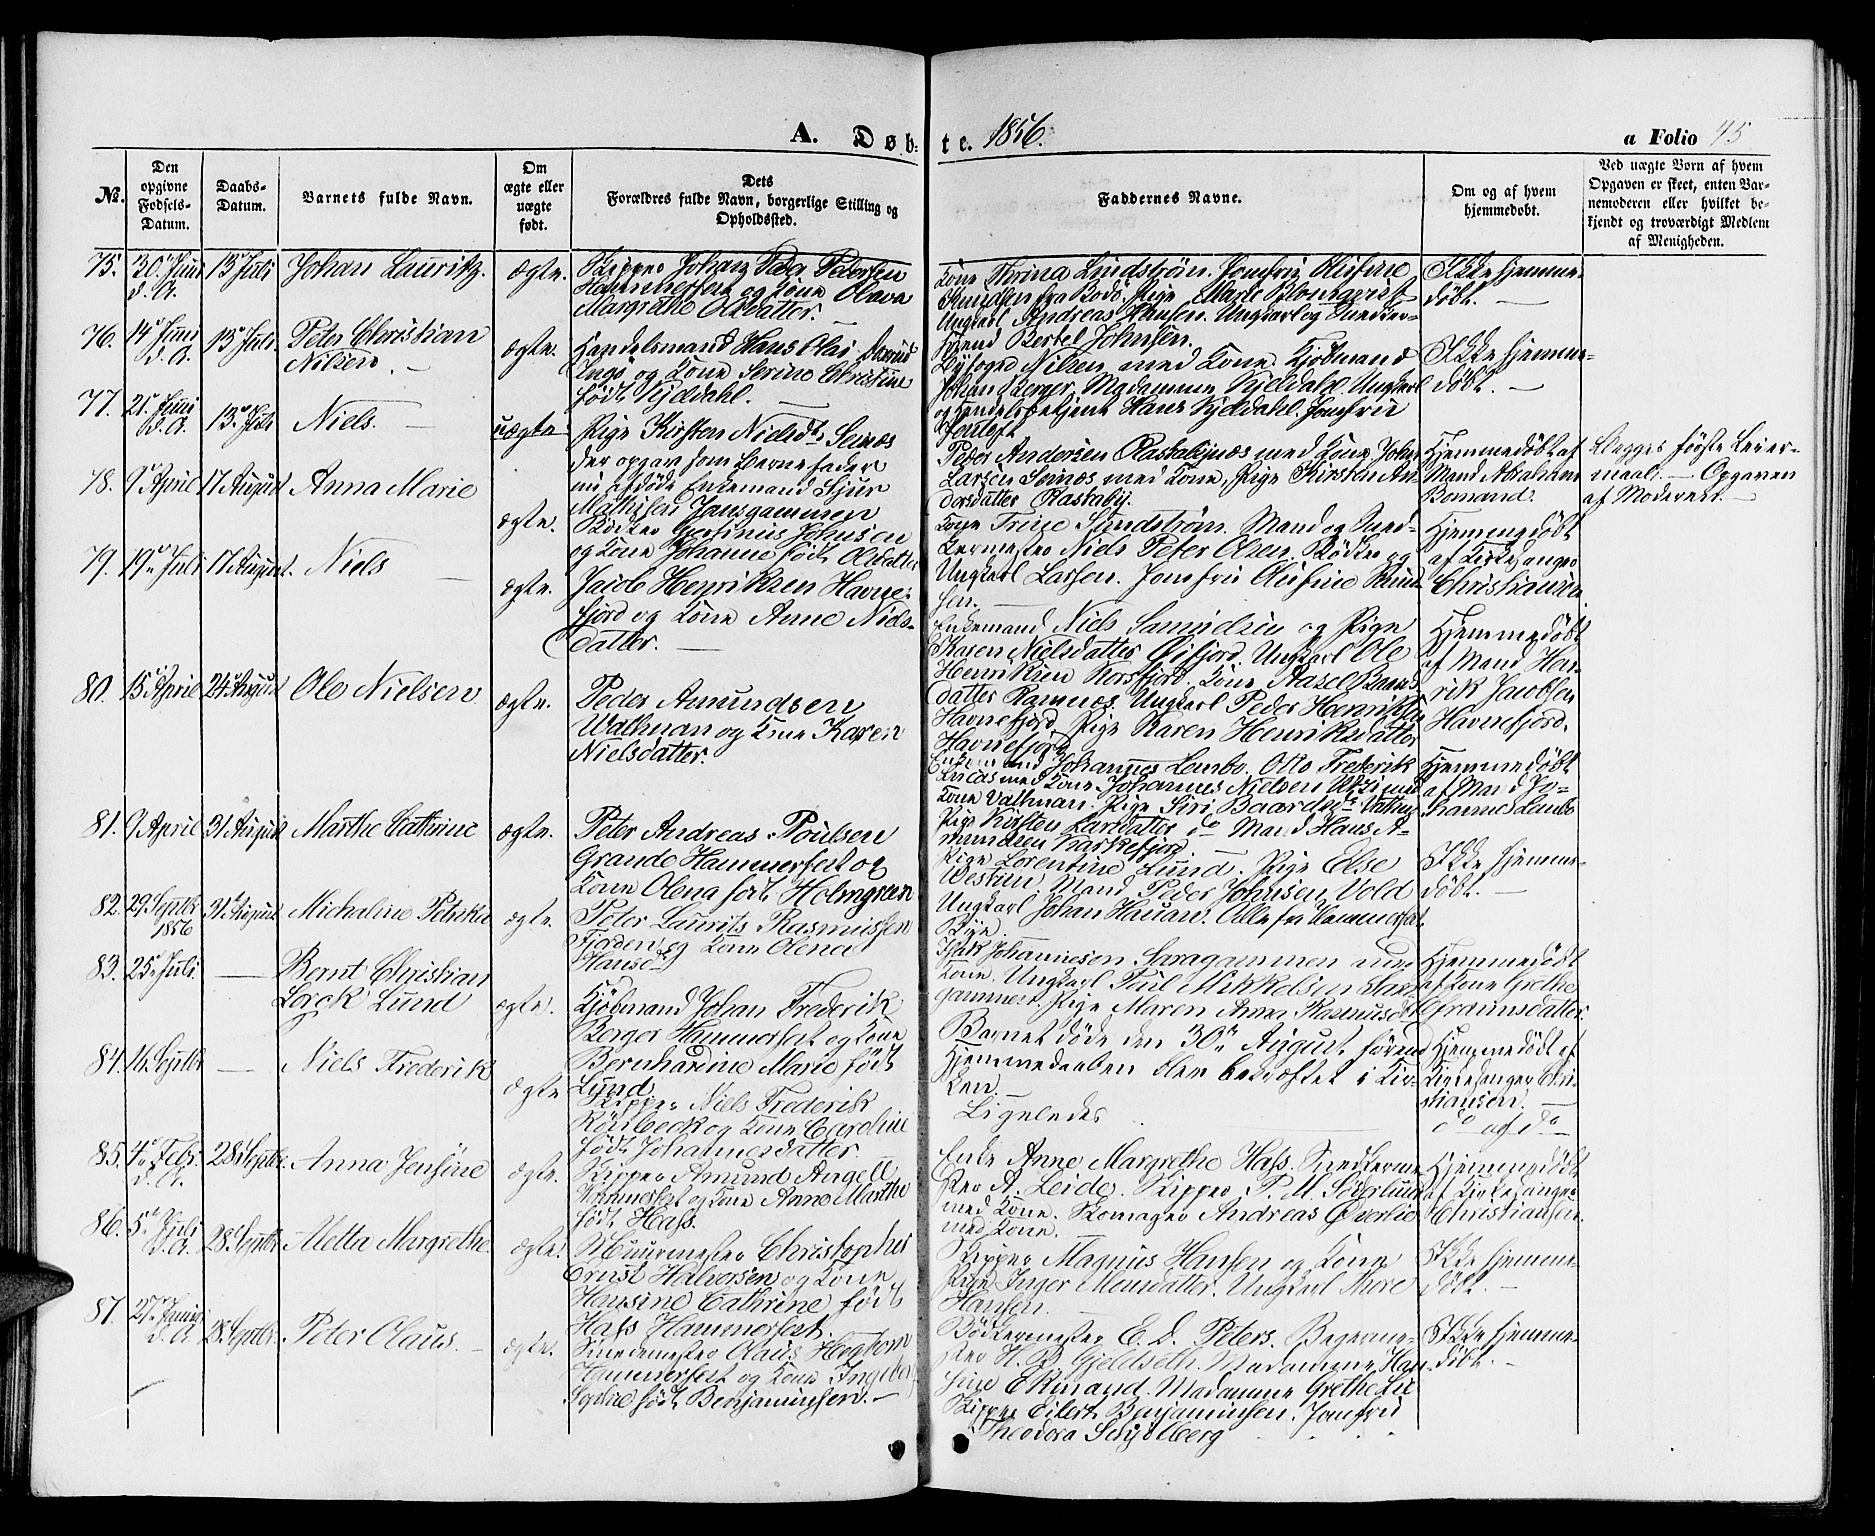 A. Døb-
te. 1856.
a Folio 45
№.
Den opgivne Fødsels-Datum.
Daabs-Datum.
Barnets fulde Navn.
Om ægte eller uægte født.
Dets Forældres fulde Navn, borgerlige Stilling og Opholdssted.
Faddernes Navne.
Om og af hvem hjemmedøbt.
Ved uægte Børn af hvem Opgaven er skeet, enten Barnemoderen eller hvilket bekjendt og troværdigt Medlem af Menigheden.
75. 30 Juni d. A. 13 Juli Johan Lauritz. ægte.
Skipper Johan Peder Pedersen
Hammerfest og Kone Olava
Margrethe Olsdatter.
Kone Thrina Lindstrøm. Jomfru Olufine
Knudsen fra Bodö. Pige Marie Blomqvist
Ungkarl Andreas Hansen. Ungkarl og Snedker-
svend Bertel Johnsen.
Ikke hjemme-
døbt. —
76. 14 Juni d. A. 13 Juli Peter Christian
Nilsen. — ægte.
Handelsmand Hans Olai
og Kone Serine Christine
født Kyldahl.
Byfoged Nilsen med Kone. Kjøbmand
Johan Berger. Madamme Kyldahl. Ungkarl
og Handelsbetjent Hans Kyldahl. Jomfru
Ikke hjemme-
døbt. —
77. 21 Juni d. A. 13 Juli Niels. — uægte.
Pige Kirsten Nielsdtr Seinæs
der opgav som Barnefader
nu afdøde Enkemand Sjur
Mathisen Jansgammen
Peder Andersen Raskebynæs med Kone. John
Larsen Seinæs med Kone, Pige Kirsten An-
dersdatter Raskeby.
Hjemmedøbt af
Mand Abraham
Bomand.
Begges første Leier-
maal. — Opgaven
af Moderen. —
78. 9 April 17 August Anna Marie ægte.
Bødker Gertinius Johnsen
og Kone Johanne født Olsdatter
Kone Trine Lindstrøm. Mand og Sned-
kermester Niels Peter Olsen. Bødker og
Ungkarl Larsen. Jomfru Olufine Knud-
sen. —
Hjemmedøbt
af Kirkesanger
Christiansen
79. 19 Juli 17 August. Niels — ægte.
Jacob Henriksen Havne-
fjord og Kone Anne Niels-
datter. —
Enkemand Niels Samuelsen og Pige
Karen Nielsdatter Øifjord. Ungkarl Ole
Henriksen Korsfjord. Kone Hazel
datter Ramnæs. Ungkarl Peder Henriksen
Havnefjord. Pige Karen Henriksdatter
Havnefjord
Hjemmedøbt
af Mand Hen-
rik Jacobsen
Havnefjord.
80. 15 April 24 August Ole Nielsen ægte.
Peder Amundsen
Waltman og Kone Karen
Nielsdatter.
Enkemand Johannes Lembo. Otto Frederik
med Kone. Johannes Nielsen med
Kone Valtman. Pige Siri Baards
Pige Kirsten Larsdatter do. Mand Hans A-
mundsen
Hjemmedøbt
af Mand Jo-
hannes Lembo
81. 9 April 31 August Marthe Cathrine ægte.
Peter Andreas Poulsen
Grande Hammerfest og
Kone Olena født Holmgreen
Pige Lorentine Lund. Pige Else
Westim. Mand Peder Johnsen Vold
Ungkarl Johan Hauan. Alle fra Hammerfest
Ikke hjemme-
døbt. —
82. 29 Septbr 1856 31 August Michaline Petrika ægte.
Peter Laurits Rasmussen
Fjorden og Kone Olena
Hansdr.
Isak Johannesen Saragammen med
Kone. Ungkarl Poul Mikkelsen
gammen. Pige Maren Anna Rasmusdr
Hjemmedøbt
af Kone Grethe
83. 25 Juli. — Bernt Christian
Lorck Lund ægte.
Kjøbmand Johan Frederik
Berger Hammerfest og Kone
Bernhardine Marie født
Lund.
Barnet døde den 30 August førend
Hjemmedaaben blev bekræftet i Kir-
ken.
Hjemmedøbt af
Kirkesanger Chri-
stiansen.
84. 16 Septbr — Niels Frederik ægte
Skipper Niels Frederik
Rönbeck og Kone Caroline
født Johannesdatter.
Ligeledes
do af do
85. 4 Febr. d. A. 28 Septbr Anna Jensine ægte.
Skipper Amund Angell
Hammerfest og Kone Anne Marthe
født Hass.
Enke Anne Margrethe Hass. Snedkerme-
ster A. Leide. Skipper P. M. Söderlund
med Kone. Skomager Andreas Øverlie
med Kone.
Hjemmedøbt
af Kirkesanger
Christiansen.
86. 5 Juli d. A. 28 Septbr Aletta Margrethe. ægte.
Muurmester Christopher
Ernst Halvorsen og Kone
Hansine Cathrine født
Hass Hammerfest.
Skipper Magnus Hansen og Kone
Pige Inger Monsdatter. Ungkarl Thore
Hansen.
Ikke hjemme-
døbt. —
87. 27 d. A. 28 Septbr Peter Olaus. — ægte.
Smedemester Olaus Hegkom
Hammerfest og Kone Ingeborg
Sophie født Benjaminsen. —
Bødkermester E. D. Peters. Bagerme-
ster H. B. Gjeldseth. Madamme Han-
sine Ekmand. Madamme Grethe Lie
Skipper Eilert Benjaminsen. Jomfru
Theodora Schjølberg
Ikke hjemme-
døbt. —